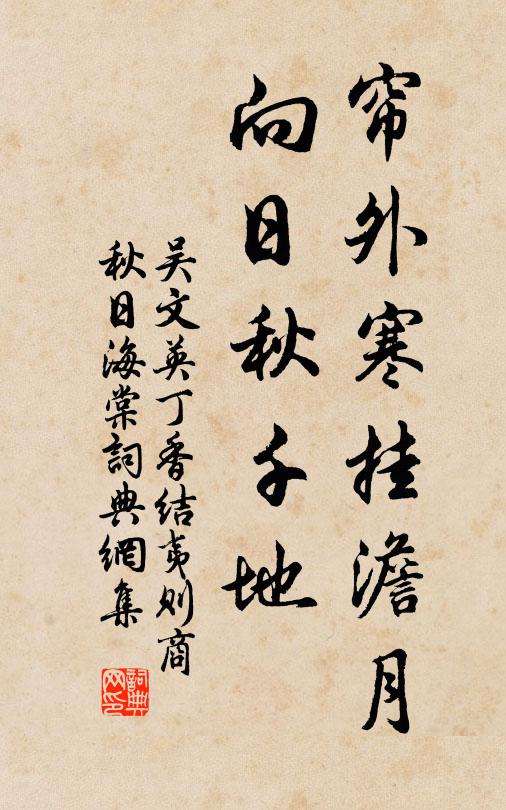 帘外寒挂澹月
向日秋千地
吴文英丁香结夷则商
秋日海棠詞典網集
詞典
网印